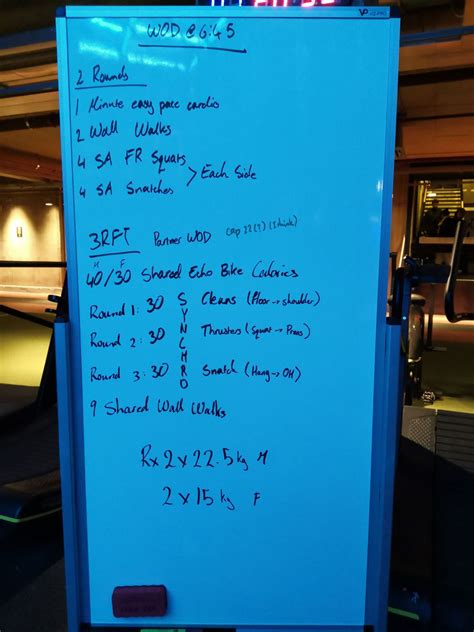 WOD @ 6:45
2 Rounds
1 Minute easy pace cardio
2 Wall Walks
4 SA FR Squats
4 SA Snatches > Each Side
3RFT Partner WOD cap 22(?) (I think)
M F
40/30 Shared Echo Bike Calories
Round 1: 30 Cleans (Floor → shoulder)
Round 2: 30 SYNCHRO Thrusters (Squat → Press)
Round 3: 30 Snatch (Hang → OH)
9 Shared Wall Walks
Rx 2 x 22.5kg M
2 x 15 kg F